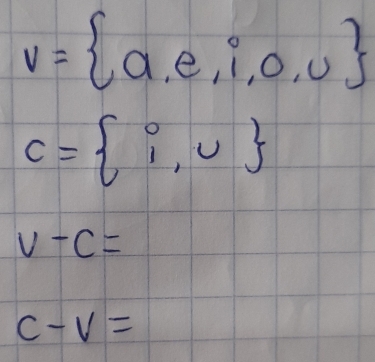 v = {a, e, i, o, u}
c = {i, u}
v - c =
c - v =